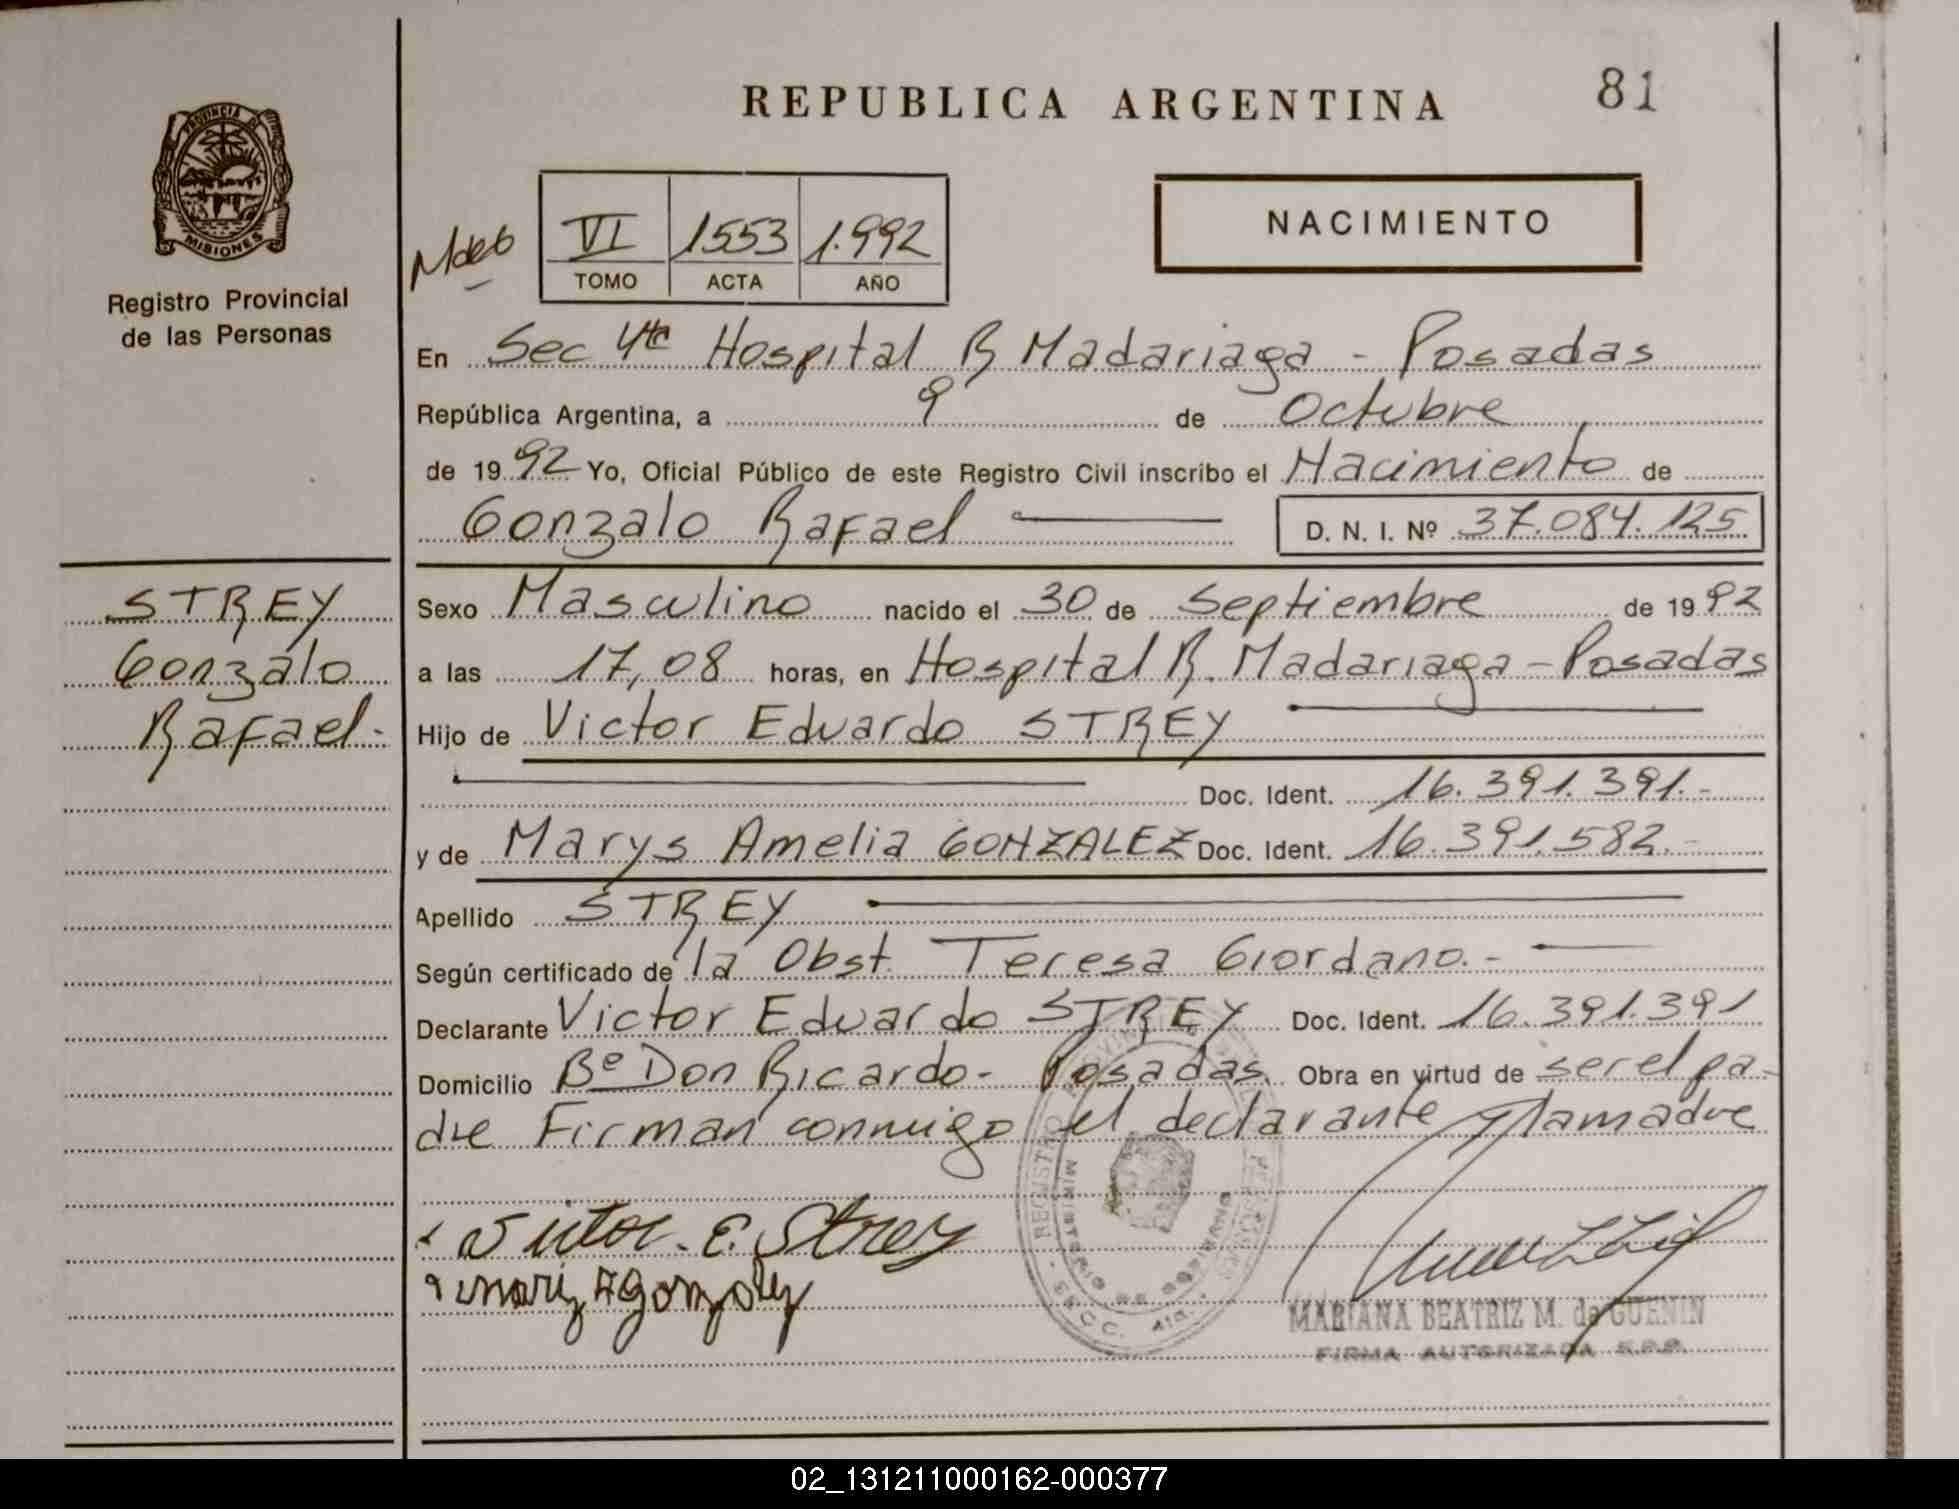 REPUBLICA ARGENTINA
81
PROVINCIA DE
MISIONES
Registro Provincial
de las Personas
VI 1553 1.992
TOMO ACTA AÑO
NACIMIENTO
En Sec 4ta Hospital R Madariaga - Posadas
República Argentina, a 9 de Octubre
de 1992 Yo, Oficial Público de este Registro Civil inscribo el Nacimiento de
Gonzalo Rafael D. N. I. Nº 37.084.125
STREY
Gonzalo
Rafael.-
Sexo Masculino nacido el 30 de Septiembre de 1992
a las 17,08 horas, en Hospital R. Madariaga - Posadas
Hijo de Victor Eduardo STREY
Doc. Ident. 16.391.391.-
y de Marys Amelia GONZALEZ Doc. Ident. 16.391.582.-
Apellido STREY
Según certificado de la Obst. Teresa Giordano.-
Declarante Victor Eduardo STREY Doc. Ident. 16.391.391
Domicilio Bº Don Ricardo - Posadas. Obra en virtud de ser el pa-
dre Firman conmigo el declarante y la madre
Victor E. Strey
MARIANA BEATRIZ M. de GUENIN
FIRMA AUTORIZADA R.P.P.
REGISTRO PROVINCIAL DE LAS PERSONAS
MINISTERIO DE GOBIERNO
02_131211000162-000377